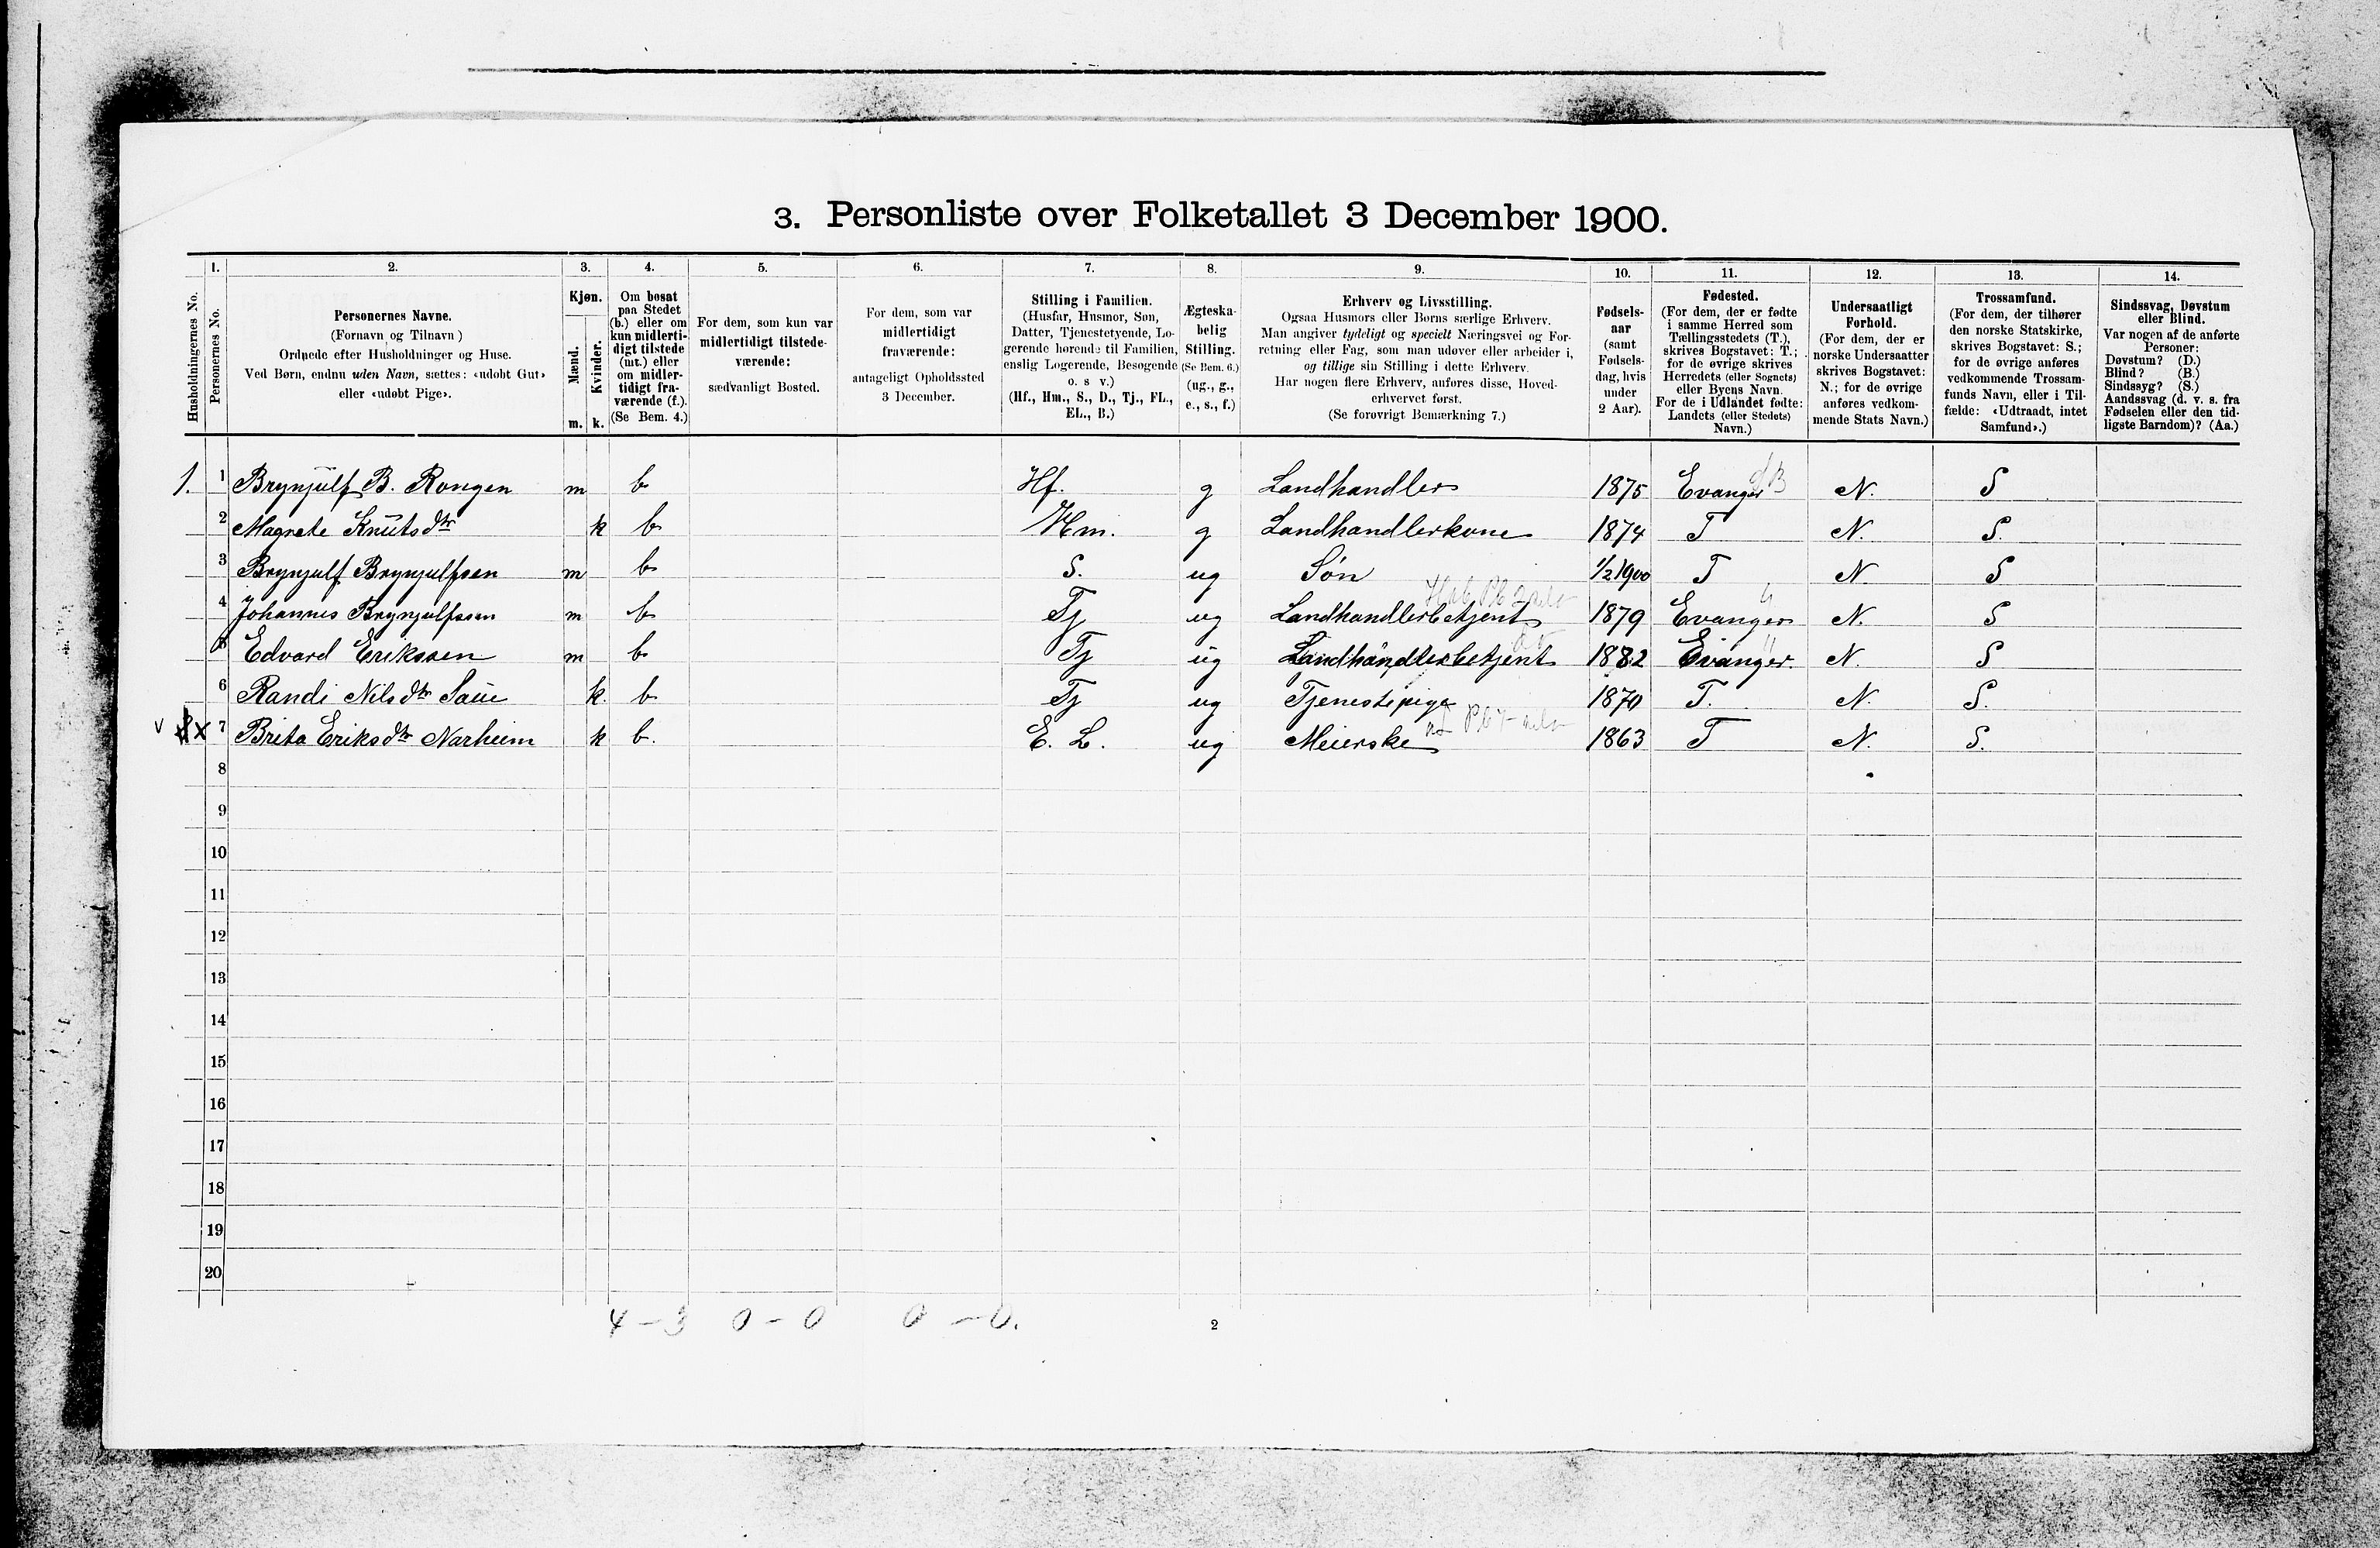 3. Personliste over Folketallet 3 December 1900.
1. 2. 3. 4. 5. 6. 7. 8. 9. 10. 11. 12. 13. 14.
Husholdningernes No.
Personernes No.
Personernes Navne.
(Fornavn og Tilnavn)
Ordnede efter Husholdninger og Huse.
Ved Børn, endnu uden Navn, sættes: «udøbt Gut»
eller «udøbt Pige».
Kjøn.
Mænd.
Kvinder.
m. k.
Om bosat
paa Stedet
(b.) eller om
kun midlerti-
digt tilstede
(mt.) eller
om midler-
tidigt fra-
værende (f.).
(Se Bem. 4.)
For dem, som kun var
midlertidigt tilstede-
værende:
sædvanligt Bosted.
For dem, som var
midlertidigt
fraværende:
antageligt Opholdssted
3 December.
Stilling i Familien.
(Husfar, Husmor, Søn,
Datter, Tjenestetyende, Lo-
gerende hørende til Familien,
enslig Logerende, Besøgende
o. s v.)
(Hf., Hm., S., D., Tj., FL.,
EL., B.)
Ægteska-
belig
Stilling.
(Se Bem. 6.)
(ug., g.,
e., s., f.)
Erhverv og Livsstilling.
Ogsaa Husmors eller Børns særlige Erhverv.
Man angiver tydeligt og specielt Næringsvei og For-
retning eller Fag, som man udøver eller arbeider i,
og tillige sin Stilling i dette Erhverv.
Har nogen flere Erhverv, anføres disse, Hoved-
erhvervet først.
(Se forøvrigt Bemærkning 7.)
Fødsels-
aar
(samt
Fødsels-
dag, hvis
under
2 Aar).
Fødested.
(For dem, der er fødte
i samme Herred som
Tællingsstedets (T.),
skrives Bogstavet: T.;
for de øvrige skrives
Herredets (eller Sognets)
eller Byens Navn.
For de i Udlandet fødte:
Landets (eller Stedets)
Navn.)
Undersaatligt
Forhold.
(For dem, der er
norske Undersaatter
skrives Bogstavet:
N.; for de øvrige
anføres vedkom-
mende Stats Navn.)
Trossamfund.
(For dem, der tilhører
den norske Statskirke,
skrives Bogstavet: S.;
for de øvrige anføres
vedkommende Trossam-
funds Navn, eller i Til-
fælde: «Udtraadt, intet
Samfund».)
Sindssvag, Døvstum
eller Blind.
Var nogen af de anførte
Personer:
Døvstum? (D.)
Blind? (B.)
Sindssyg? (S.)
Aandssvag (d. v. s. fra
Fødselen eller den tid-
ligste Barndom)? (Aa.)
1. 1 Brynjulf B. Rongen m b Hf. g Landhandler 1875 Evanger N. S
2 Magnete Knutsdtr k b Hm. g Landhandlerkone 1874 T N. S.
3 Brynjulf Brynjulfsen m b S. ug Søn 1/2 1900 T N. S
4 Johannes Brynjulfssen m b Tj ug Landhandlerbetjent 1879 Evanger N. S
5 Edvard Erikssen m b Tj ug Landhandlerbetjent 1882 Evanger N. S
6 Randi Nilsdtr Saue k. b Tj ug Tjenestepige 1870 T. N. S.
v x 7 Brita Eriksdtr Narheim k b. E. L. ug Meierske 1863 T N. S.
8
9
10
11
12
13
14
15
16
17
18
19
20
4 – 3 0 – 0 0 – 0.
2